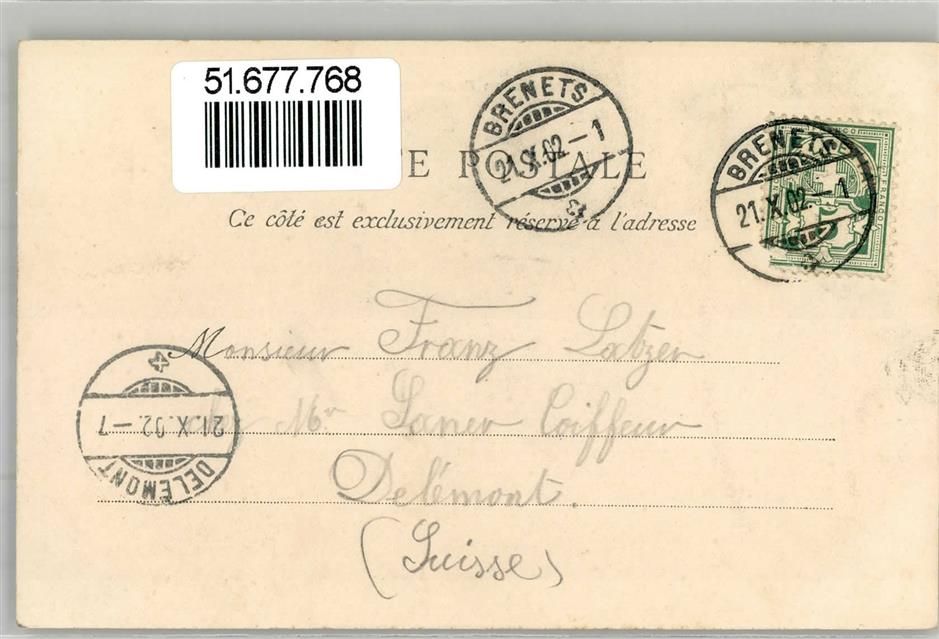 51.677.768
BRENETS
21.X.02.-1
BRENETS
21.X.02.-1
TE POSTALE
Ce côté est exclusivement réservé à l'adresse
Monsieur Franz Latzer
chez Mr Saner Coiffeur
Delémont.
(Suisse)
21.X.02.-7
DELÉMONT